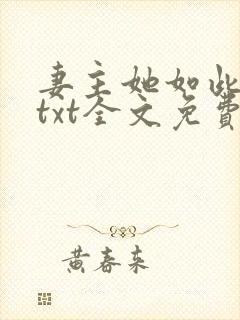 妻主她如此
txt全文免費
黃春來